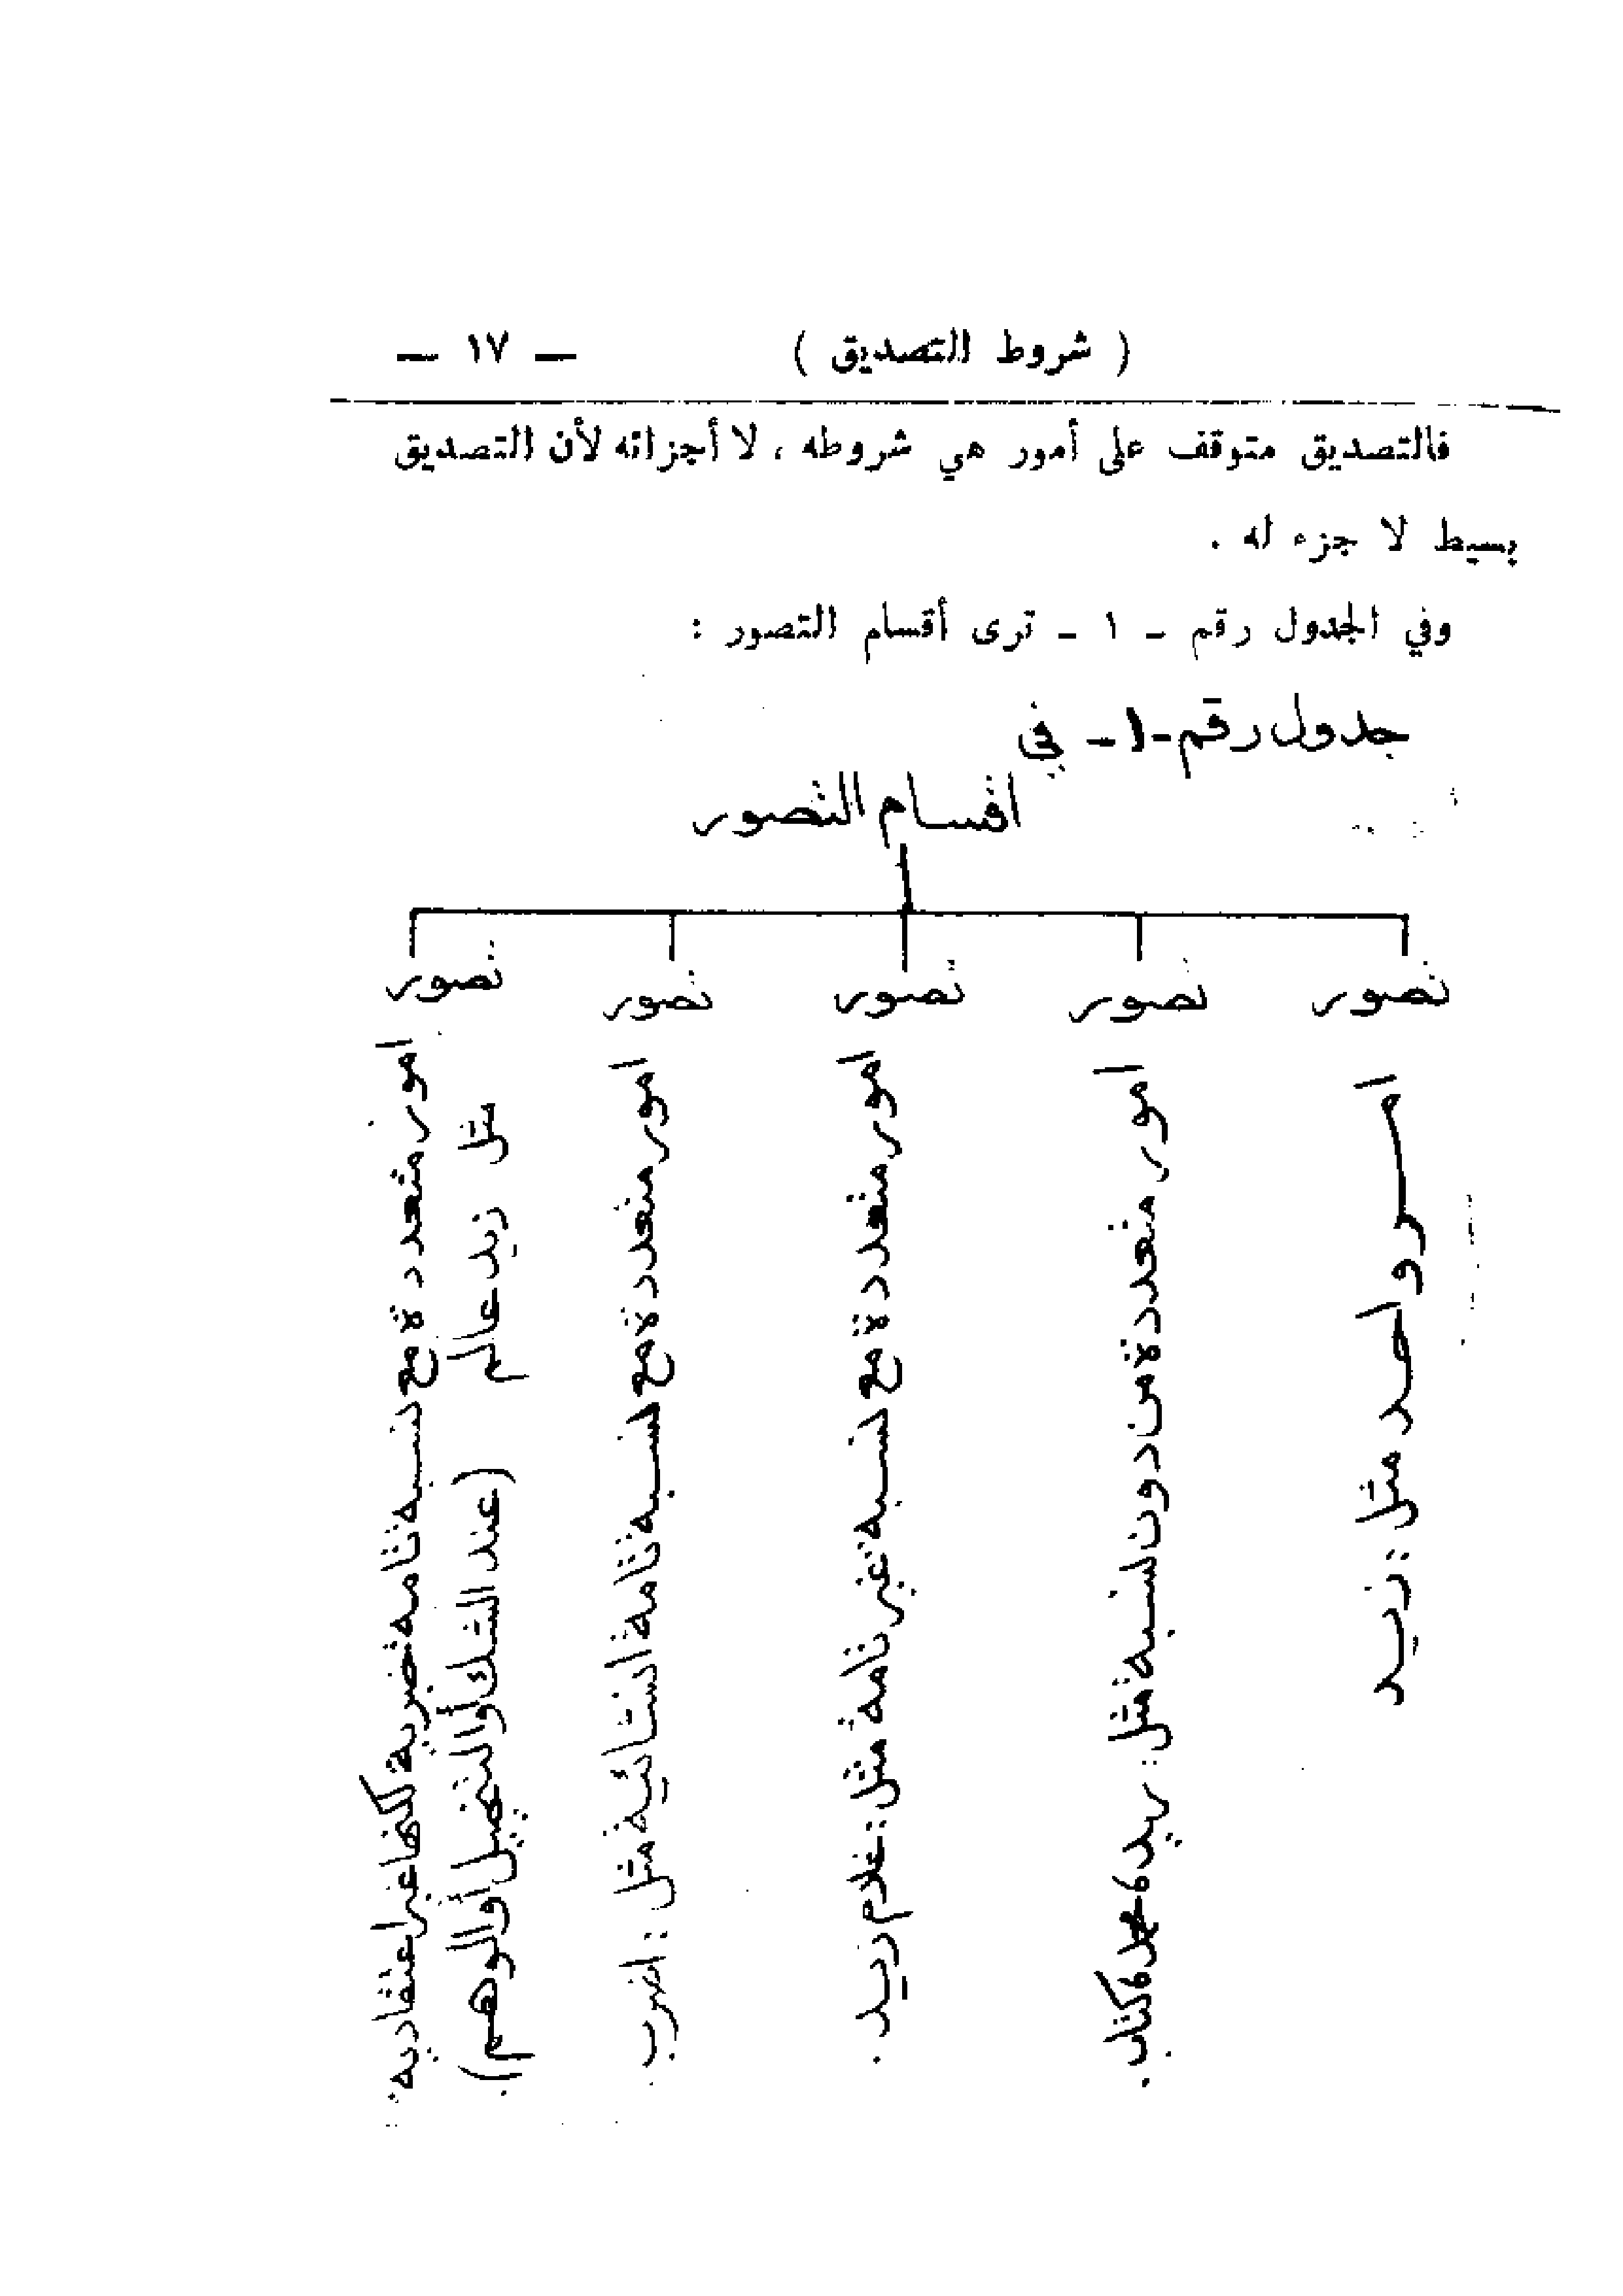 ( شروط التصديق ) — ١٧ —
فالتصديق متوقف على أمور هي شروطه ، لا أجزائه لأن التصديق
بسيط لا جزء له .
وفي الجدول رقم - ١ - ترى أقسام التصور :
جدول رقم -١- في
اقسام التصور
تصور
امر واحد مثل : زيد
تصور
امور متعددة من دون نسبة مثل : زيد، محمد، كتاب.
تصور
امور متعددة مع نسبة غير تامة مثل : غلام زيد.
تصور
امور متعددة مع نسبة تامة انشائية مثل : اضرب.
تصور
امور متعددة مع نسبة تامة خبرية لكنها غير اعتقادية
مثل زيد عالم (عند الشك أو التخييل أو الوهم).